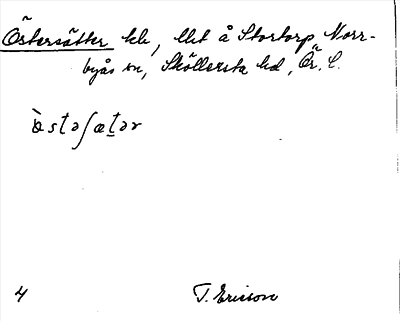 Östersätter tele, llet å Stortorp, Norr-
byås sn, Sköllersta hd, Ör. l.
ö̀stəʃætər
4 T. Ericson